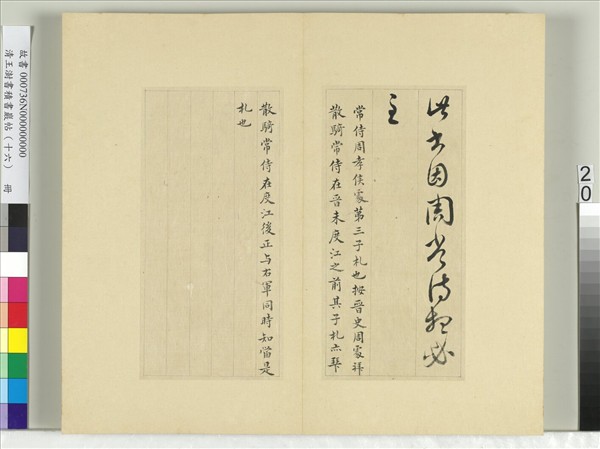 此書因周常侍想必
至
常侍周孝侯處第三子札也按晉史周處拜
散騎常侍在晉未度江之前其子札亦拜
散騎常侍在度江後正与右軍同時知當是
札也
故書 000736N000000000
清王澍書積書巖帖（十六） 冊
20